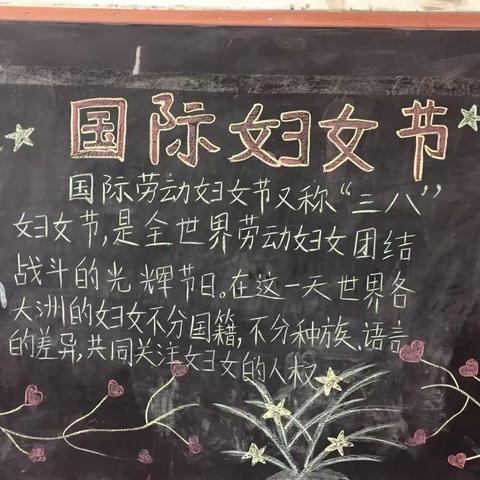 国际妇女节
国际劳动妇女节又称“三八”
妇女节,是全世界劳动妇女团结
战斗的光辉节日。在这一天世界各
大洲的妇女不分国籍,不分种族、语言
的差异,共同关注妇女的人权